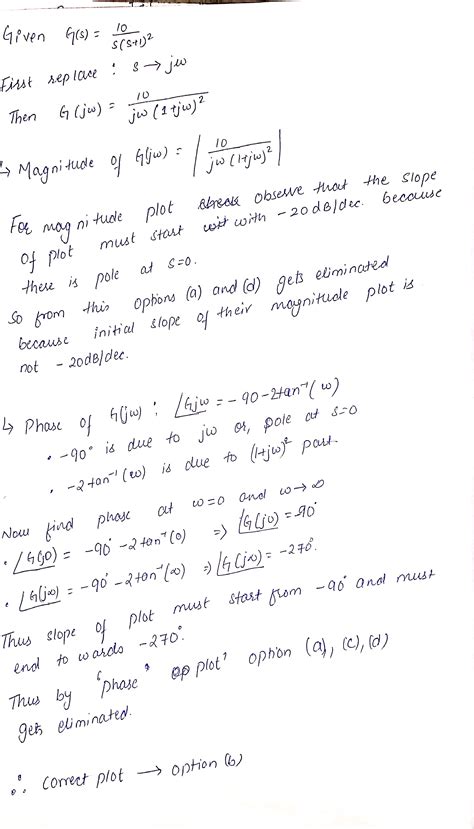 Given G(s) = 10 / s(s+1)²
First replace : s → jω
Then G(jω) = 10 / jω(1+jω)²
↳ Magnitude of G(jω) = | 10 / jω(1+jω)² |
For magnitude plot observe that the slope
of plot must start with -20dB/dec. because
there is pole at s=0.
So from this options (a) and (d) gets eliminated
because initial slope of their magnitude plot is
not -20dB/dec.
↳ Phase of G(jω) : ∠Gjω = -90-2tan⁻¹(ω)
• -90° is due to jω or, pole at s=0
• -2tan⁻¹(ω) is due to (1+jω)² part.
Now find phase at ω=0 and ω→∞
• ∠G(j0) = -90°-2tan⁻¹(0) ⇒ ∠G(j0) = -90°
• ∠G(j∞) = -90°-2tan⁻¹(∞) ⇒ ∠G(j∞) = -270°.
Thus slope of plot must start from -90° and must
end to wards -270°.
Thus by 'phase' plot' option (a), (c), (d)
gets eliminated.
∴ correct plot → option (b)